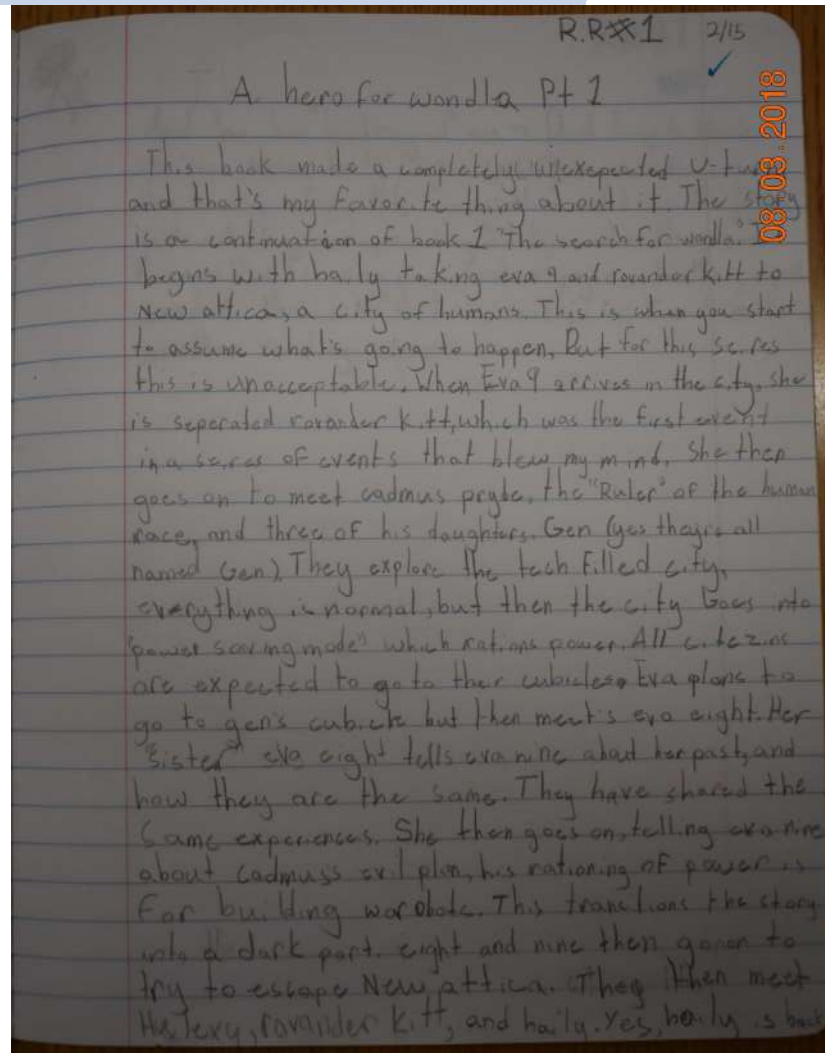 R.R#1 2/15
A hero for wondla Pt 1
08.03.2018
This book made a completely unexepected U-turn
and that's my favorite thing about it. The story
is a continuation of book 1 "The search for wondla." It
begins with haily taking eva 9 and rovander kitt to
New attica, a city of humans. This is when you start
to assume what's going to happen, But for this series
this is unacceptable. When Eva 9 arrives in the city, she
is seperated rovander kitt, which was the first event
in a series of events that blew my mind. She then
goes on to meet cadmus pryde, the "Ruler" of the human
race, and three of his daughters. Gen (yes they're all
named Gen). They explore the tech filled city,
everything is normal, but then the city Goes into
"power saving mode" which rations power. All
are expected to go to ther cubicles. Eva plans to
go to gen's cubicle but then meet's eva eight. Her
"sister" eva eight tells eva nine about her past, and
how they are the same. They have shared the
same experiences. She then goes on, telling eva nine
about cadmus's evil plan, his rationing of power is
for building warobots. This the story
into a dark part. eight and nine then to
try to escape New attica. They then meet
rovander kitt, and haily. Yes, haily is back